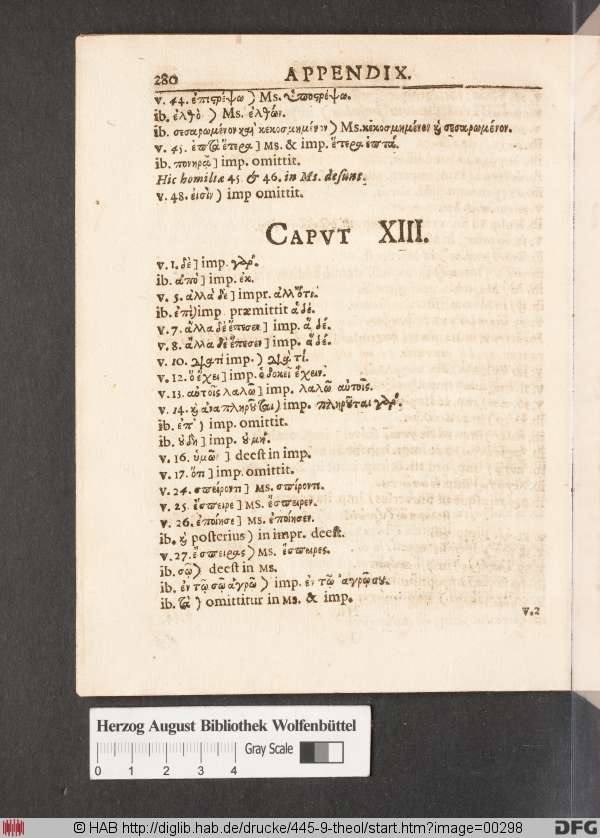 280 APPENDIX.
v. 44. ἐπιστρέψω ) Ms. ὑποστρέψω.
ib. ἐλθὸ ) Ms. ἐλθών.
ib. σεσαρωμένον καὶ κεκοσμημένον ) Ms. κεκοσμημένον ϗ σεσαρωμένον.
v. 45. ἑπτὰ ἕτερα ] Ms. & imp. ἕτερα ἑπτά.
ib. πονηρᾷ ] imp. omittit.
Hic homiliæ 45 & 46. in Ms. desunt.
v. 48. εἰσὶν ) imp omittit.
CAPVT XIII.
v. 1. δὲ ] imp. γάρ.
ib. ἀπὸ ] imp. ἐκ.
v. 5. ἀλλὰ δὲ ] impr. ἀλλ' ὅτε.
ib. ἐπὶ ) imp præmittit ἁ δέ.
v. 7. ἄλλα δὲ ἔπεσεν ] imp. ἃ δέ.
v. 8. ἄλλα δὲ ἔπεσεν ] imp. ἃ δέ.
v. 10. διατί imp. ) διὰ τί.
v. 12. ὃ ἔχει ] imp. ὁ δοκεῖ ἔχειν.
v. 13. αὐτοῖς λαλῶ ] imp. λαλῶ αὐτοῖς.
v. 14. ϗ ἀναπληροῦται ) imp. πληροῦται γάρ.
ib. ἐπ' ) imp. omittit.
ib. ου δη ] imp. ου μή.
v. 16. ὑμῶν ] deest in imp.
v. 17. ὅτι ] imp. omittit.
v. 24. σπείροντι ] Ms. σπίροντι.
v. 25. ἔσπειρε ] Ms. ἔσπειρεν.
v. 26. ἐποίησε ] Ms. ἐποίησεν.
ib. ϗ posterius ) in impr. deest.
v. 27. ἔσπειρας ) Ms. ἔσπειρες.
ib. σῷ ) deest in Ms.
ib. ἐν τῷ σῷ ἀγρῷ ) imp. ἐν τῷ ἀγρῷ σου.
ib. τὰ ) omittitur in Ms. & imp.
v. 2
Herzog August Bibliothek Wolfenbüttel
Gray Scale
0 1 2 3 4
© HAB http://diglib.hab.de/drucke/445-9-theol/start.htm?image=00298
DFG